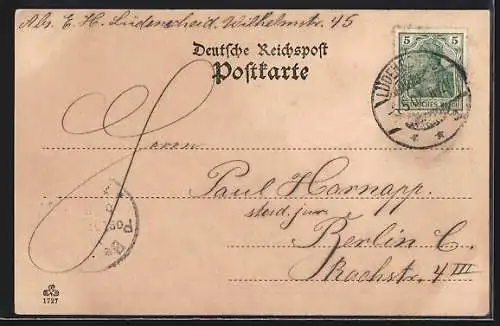 Abs. E. H. Lüdenscheid. Wilhelmstr. 45
Deutsche Reichspost
Postkarte
5 5
DEUTSCHES REICH
LÜDEN
Herrn
Paul Harnapp.
stud. jur.
Berlin C.
Rochstr. 4 III
1727